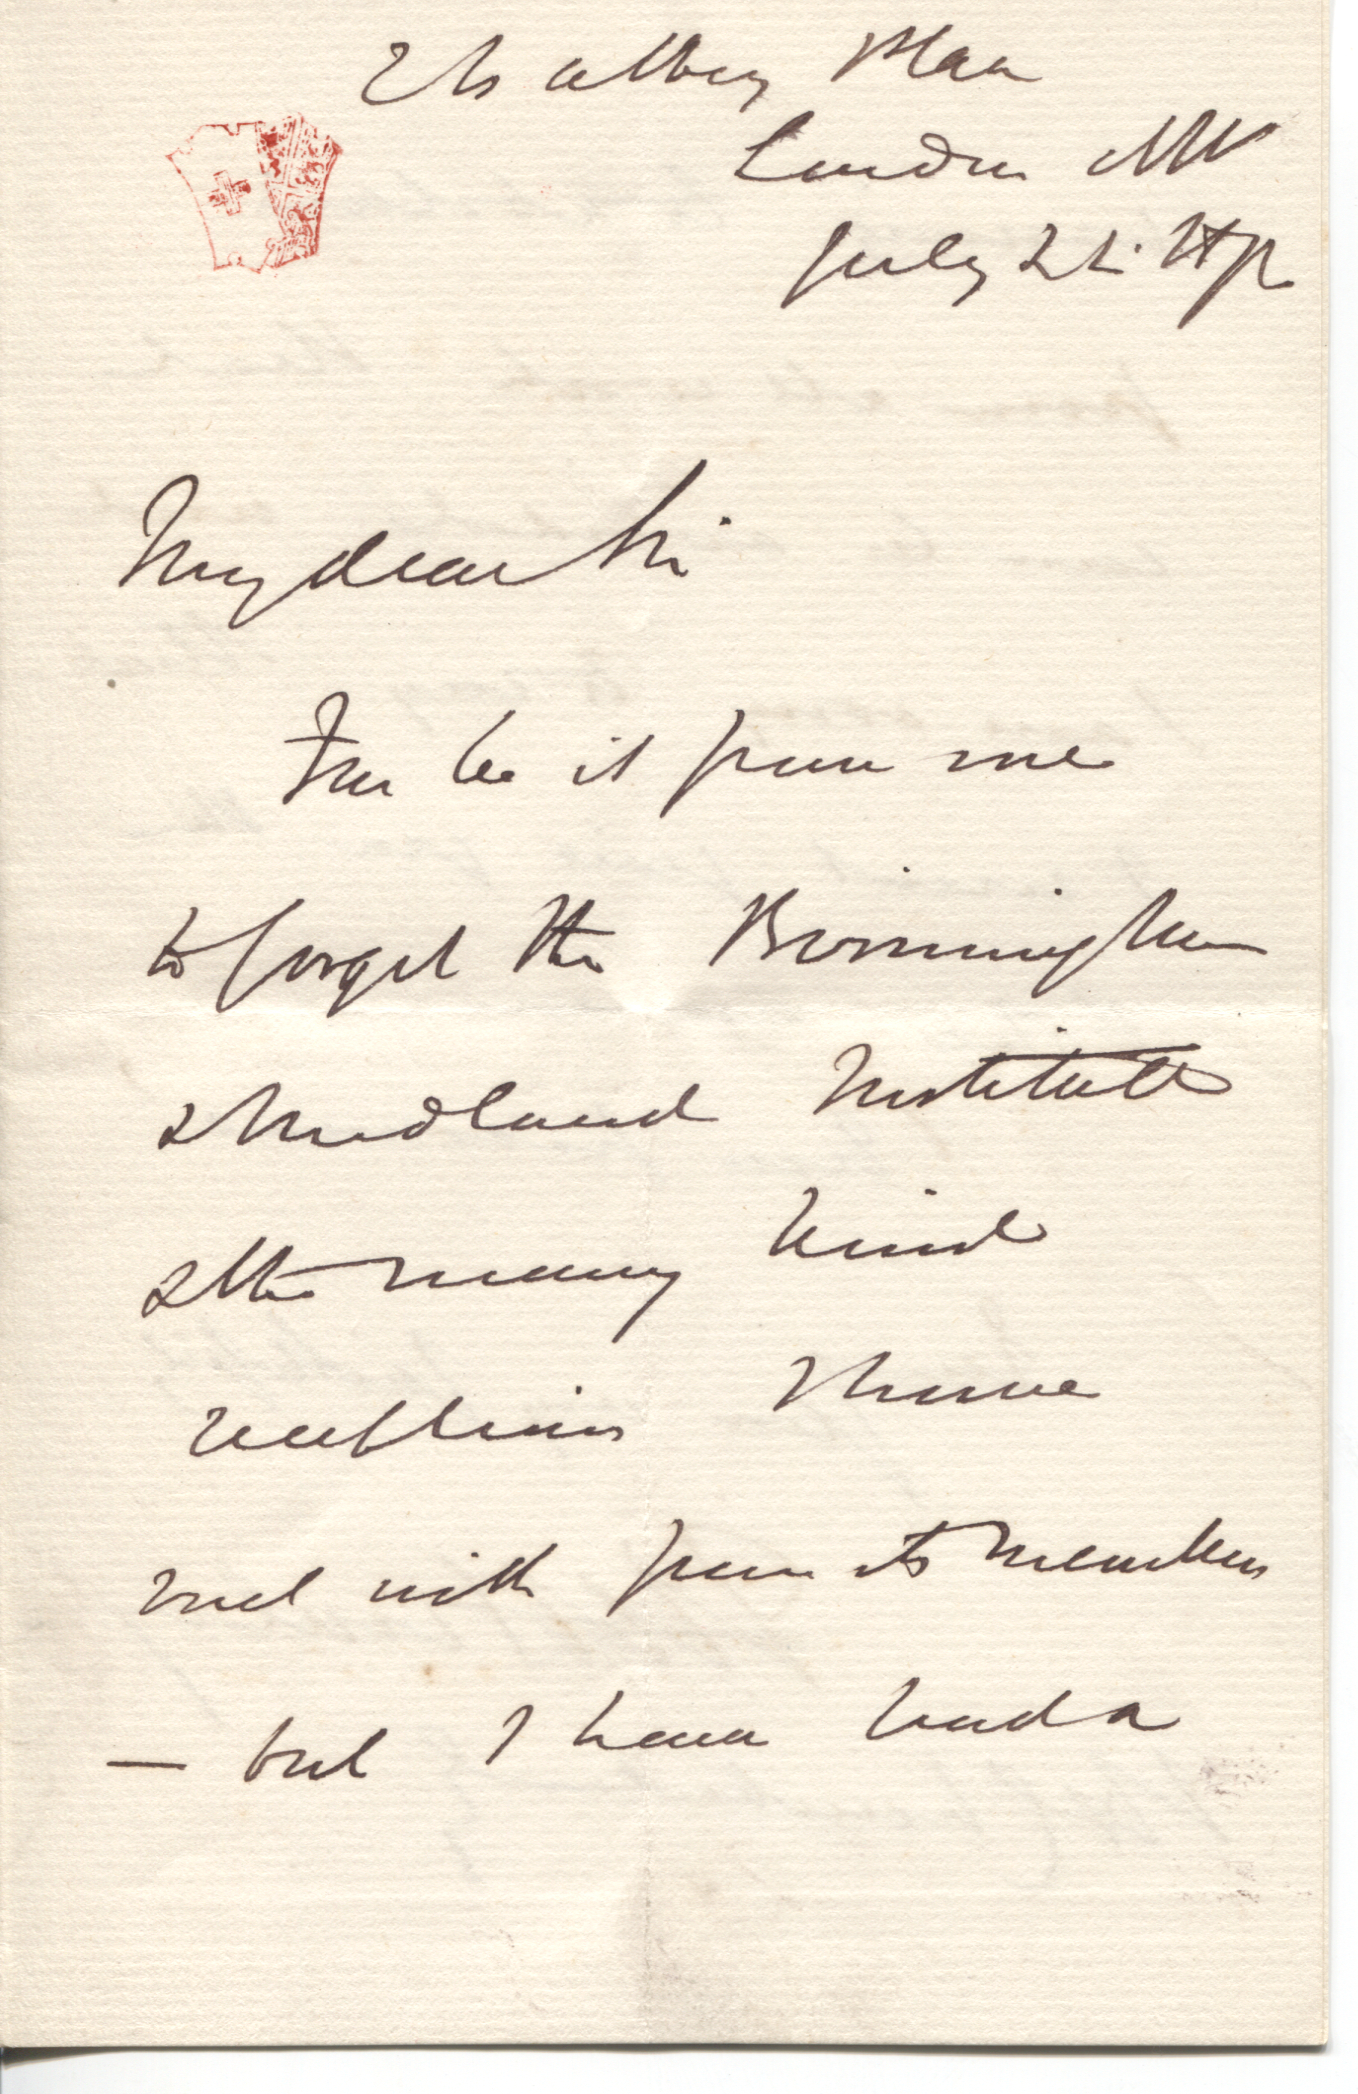 Abbey Place
London NW
July 22.
My dear Sir
Far be it from me
to forget the Birmingham
& Midland Institute
& the many kind
receptions I have
met with from its members
— but I have had a